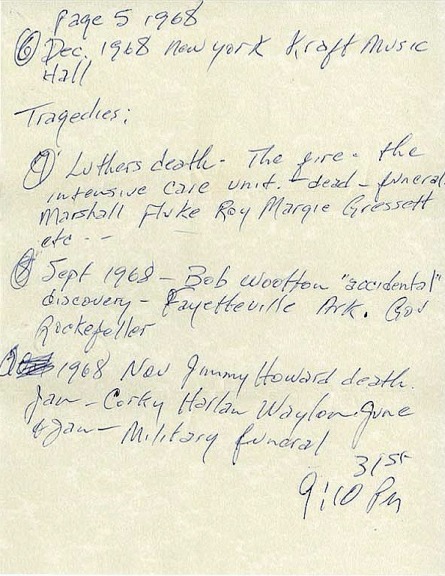 Page 5 1968
⑥ Dec. 1968 New York Kraft Music
Hall
Tragedies:
⑦ Luthers death - The fire - the
intensive care unit. - dead - funeral
Marshall Fluke Roy Margie Gressett
etc --
⑧ Sept 1968 - Bob Wootton "accidental"
discovery - Fayetteville Ark. Gov
Rockefeller
1968 Nov Jimmy Howard death.
Jan - Corky Harlan Waylon June
& Jan - Military funeral
31st
9:10 Pm